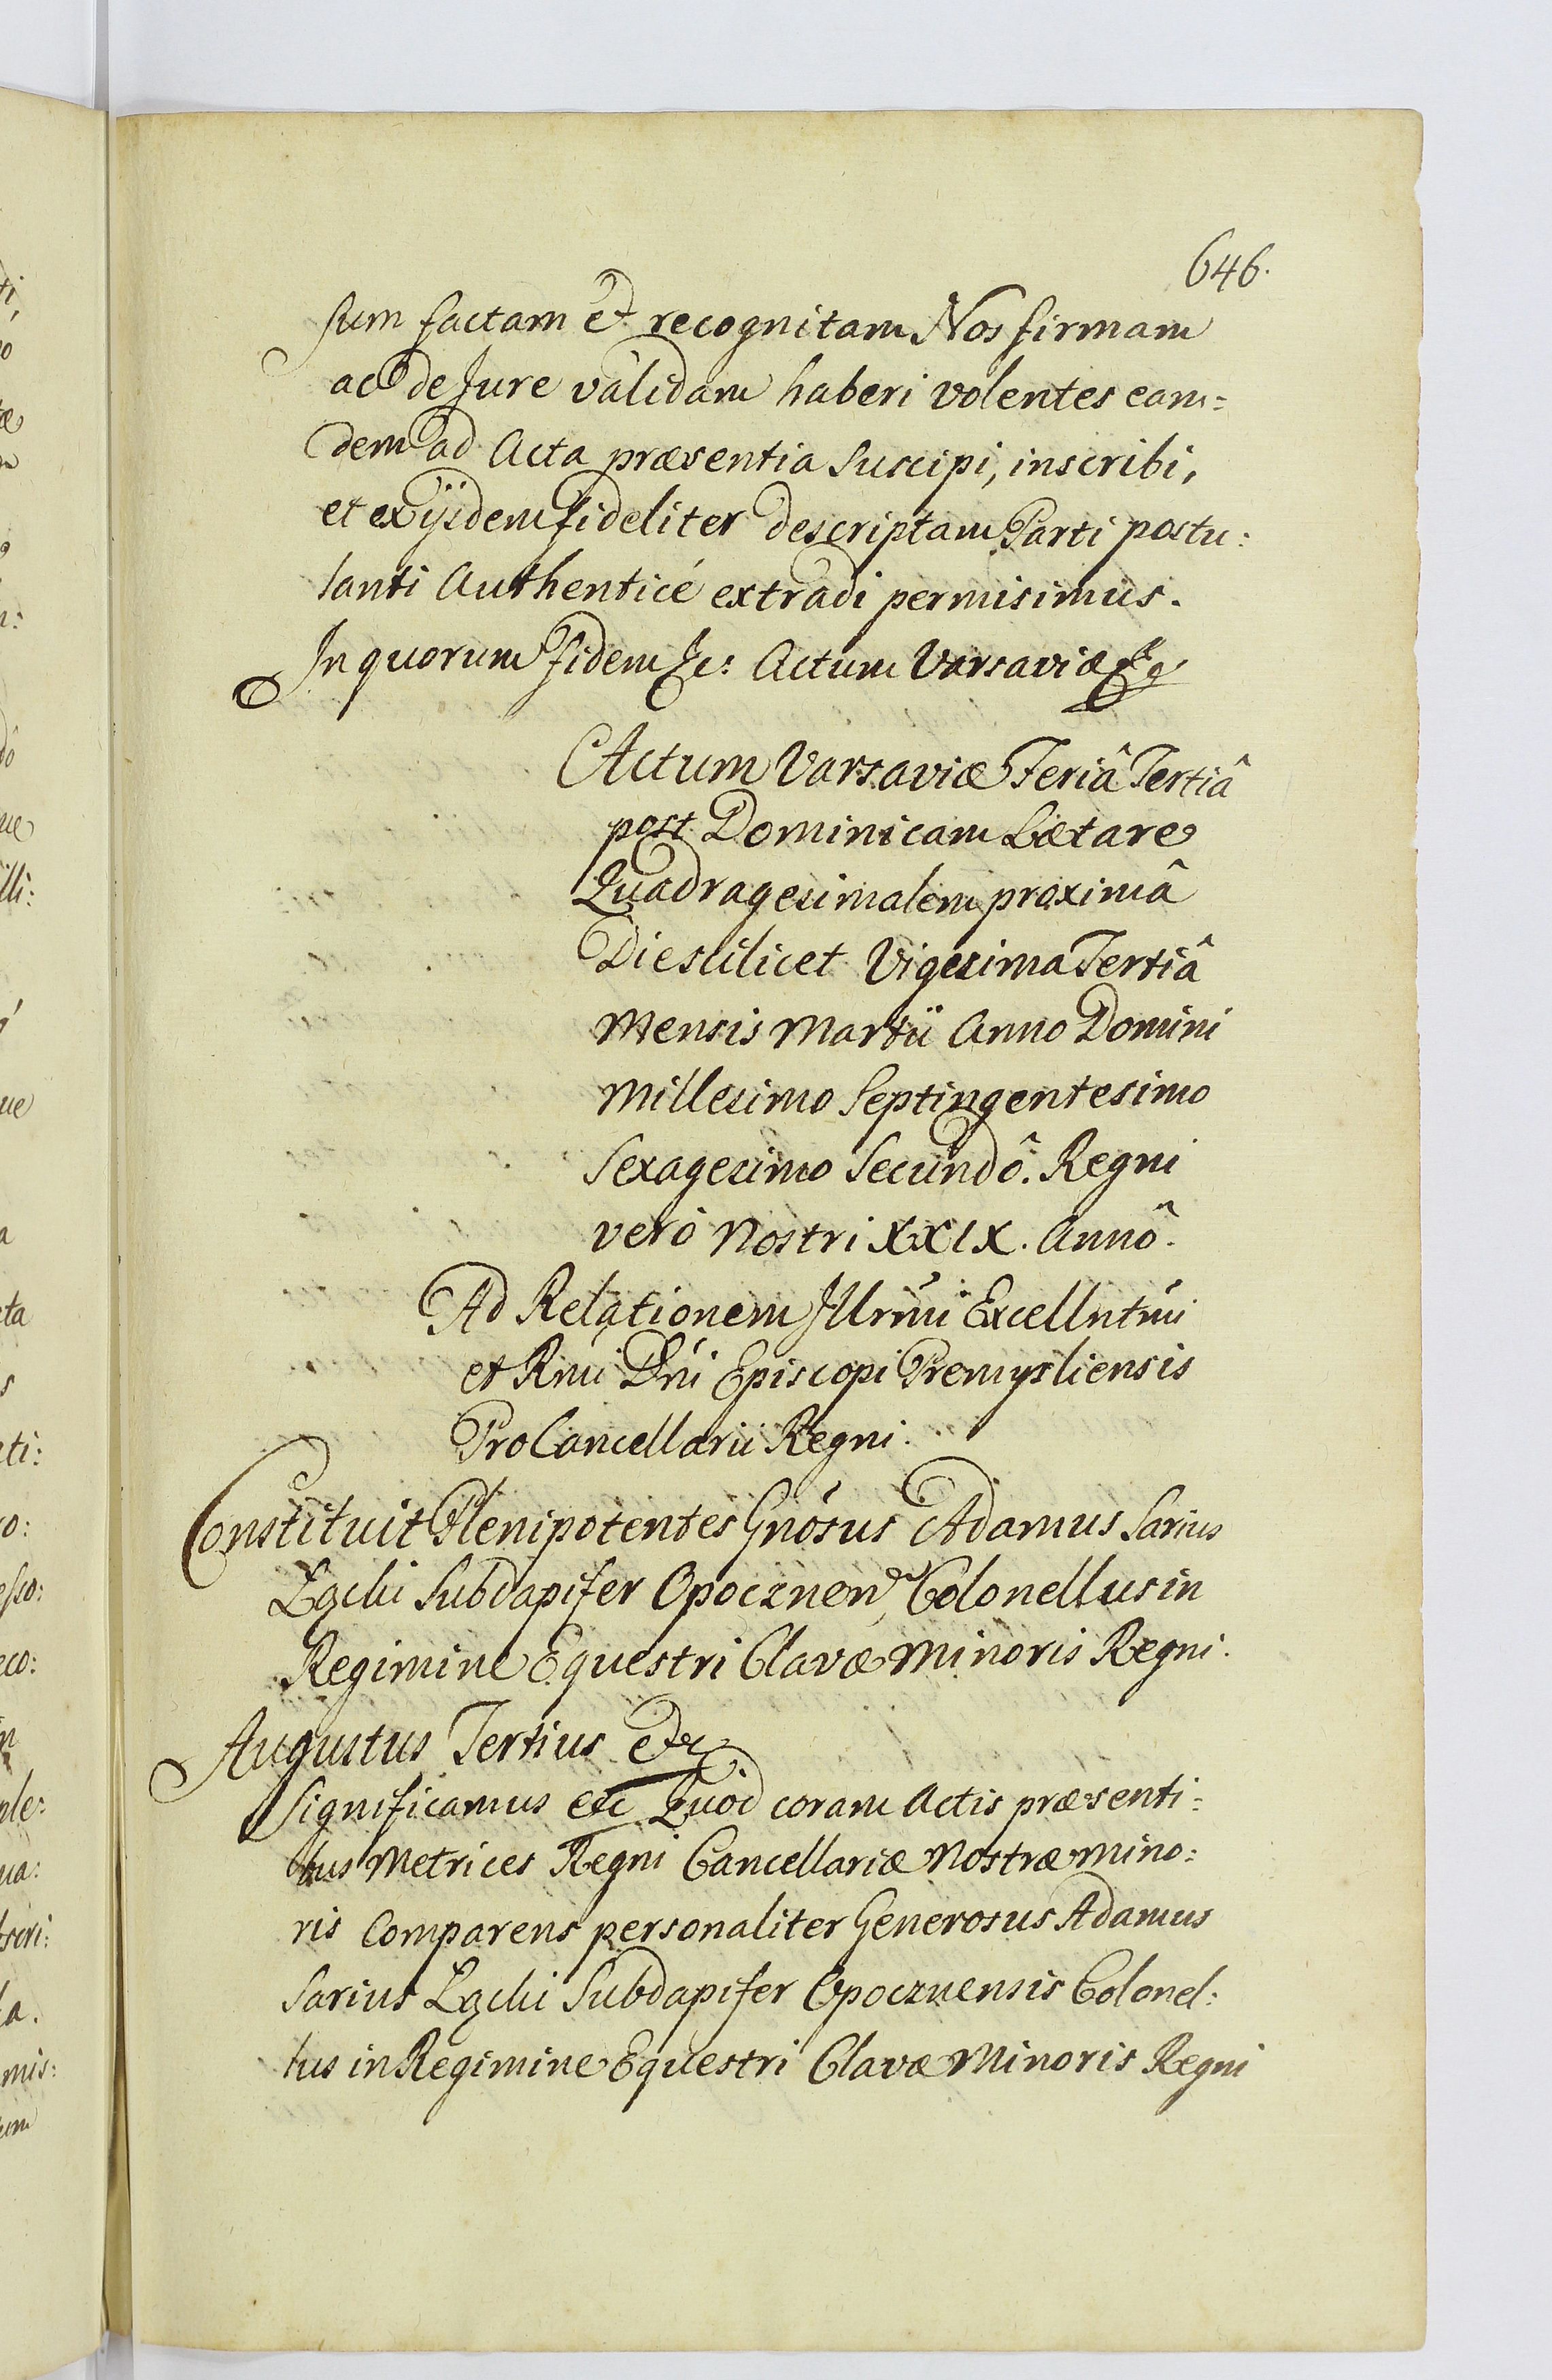 646.
sum factam et recognitam Nos firmam
ac de Jure validam haberi volentes eam=
dem ad Acta præsentia suscipi, inscribi,
et ex ijsdem fideliter descriptam Parti postu:
lanti Authenticé extradi permisimus.
In quorum fidem &c: Actum Varsaviæ &c
Actum Varsaviæ Feriâ Tertiâ
post Dominicam Lætare
Quadragesimalem proximâ
Die scilicet Vigesima Tertiâ
Mensis Martii Anno Domini
Millesimo Septingentesimo
Sexagesimo Secundô. Regni
verò Nostri XXIX. Annô.
Ad Relationem Illrmi Excellntmi
et Rmi Dni Episcopi Premysliensis
ProCancellarii Regni.
Constituit Plenipotentes Gnosus Adamus Sarius
Łącki Subdapifer Opocznen, Colonellus in
Regimine Equestri Clavæ Minoris Regni.
Augustus Tertius etc
Significamus etc Quod coram Actis præsenti=
bus Metrices Regni Cancellariæ Nostræ mino:
ris Comparens personaliter Generosus Adamus
Sarius Łącki Subdapifer Opocznensis Colonel:
lus in Regimine Equestri Clavæ Minoris Regni